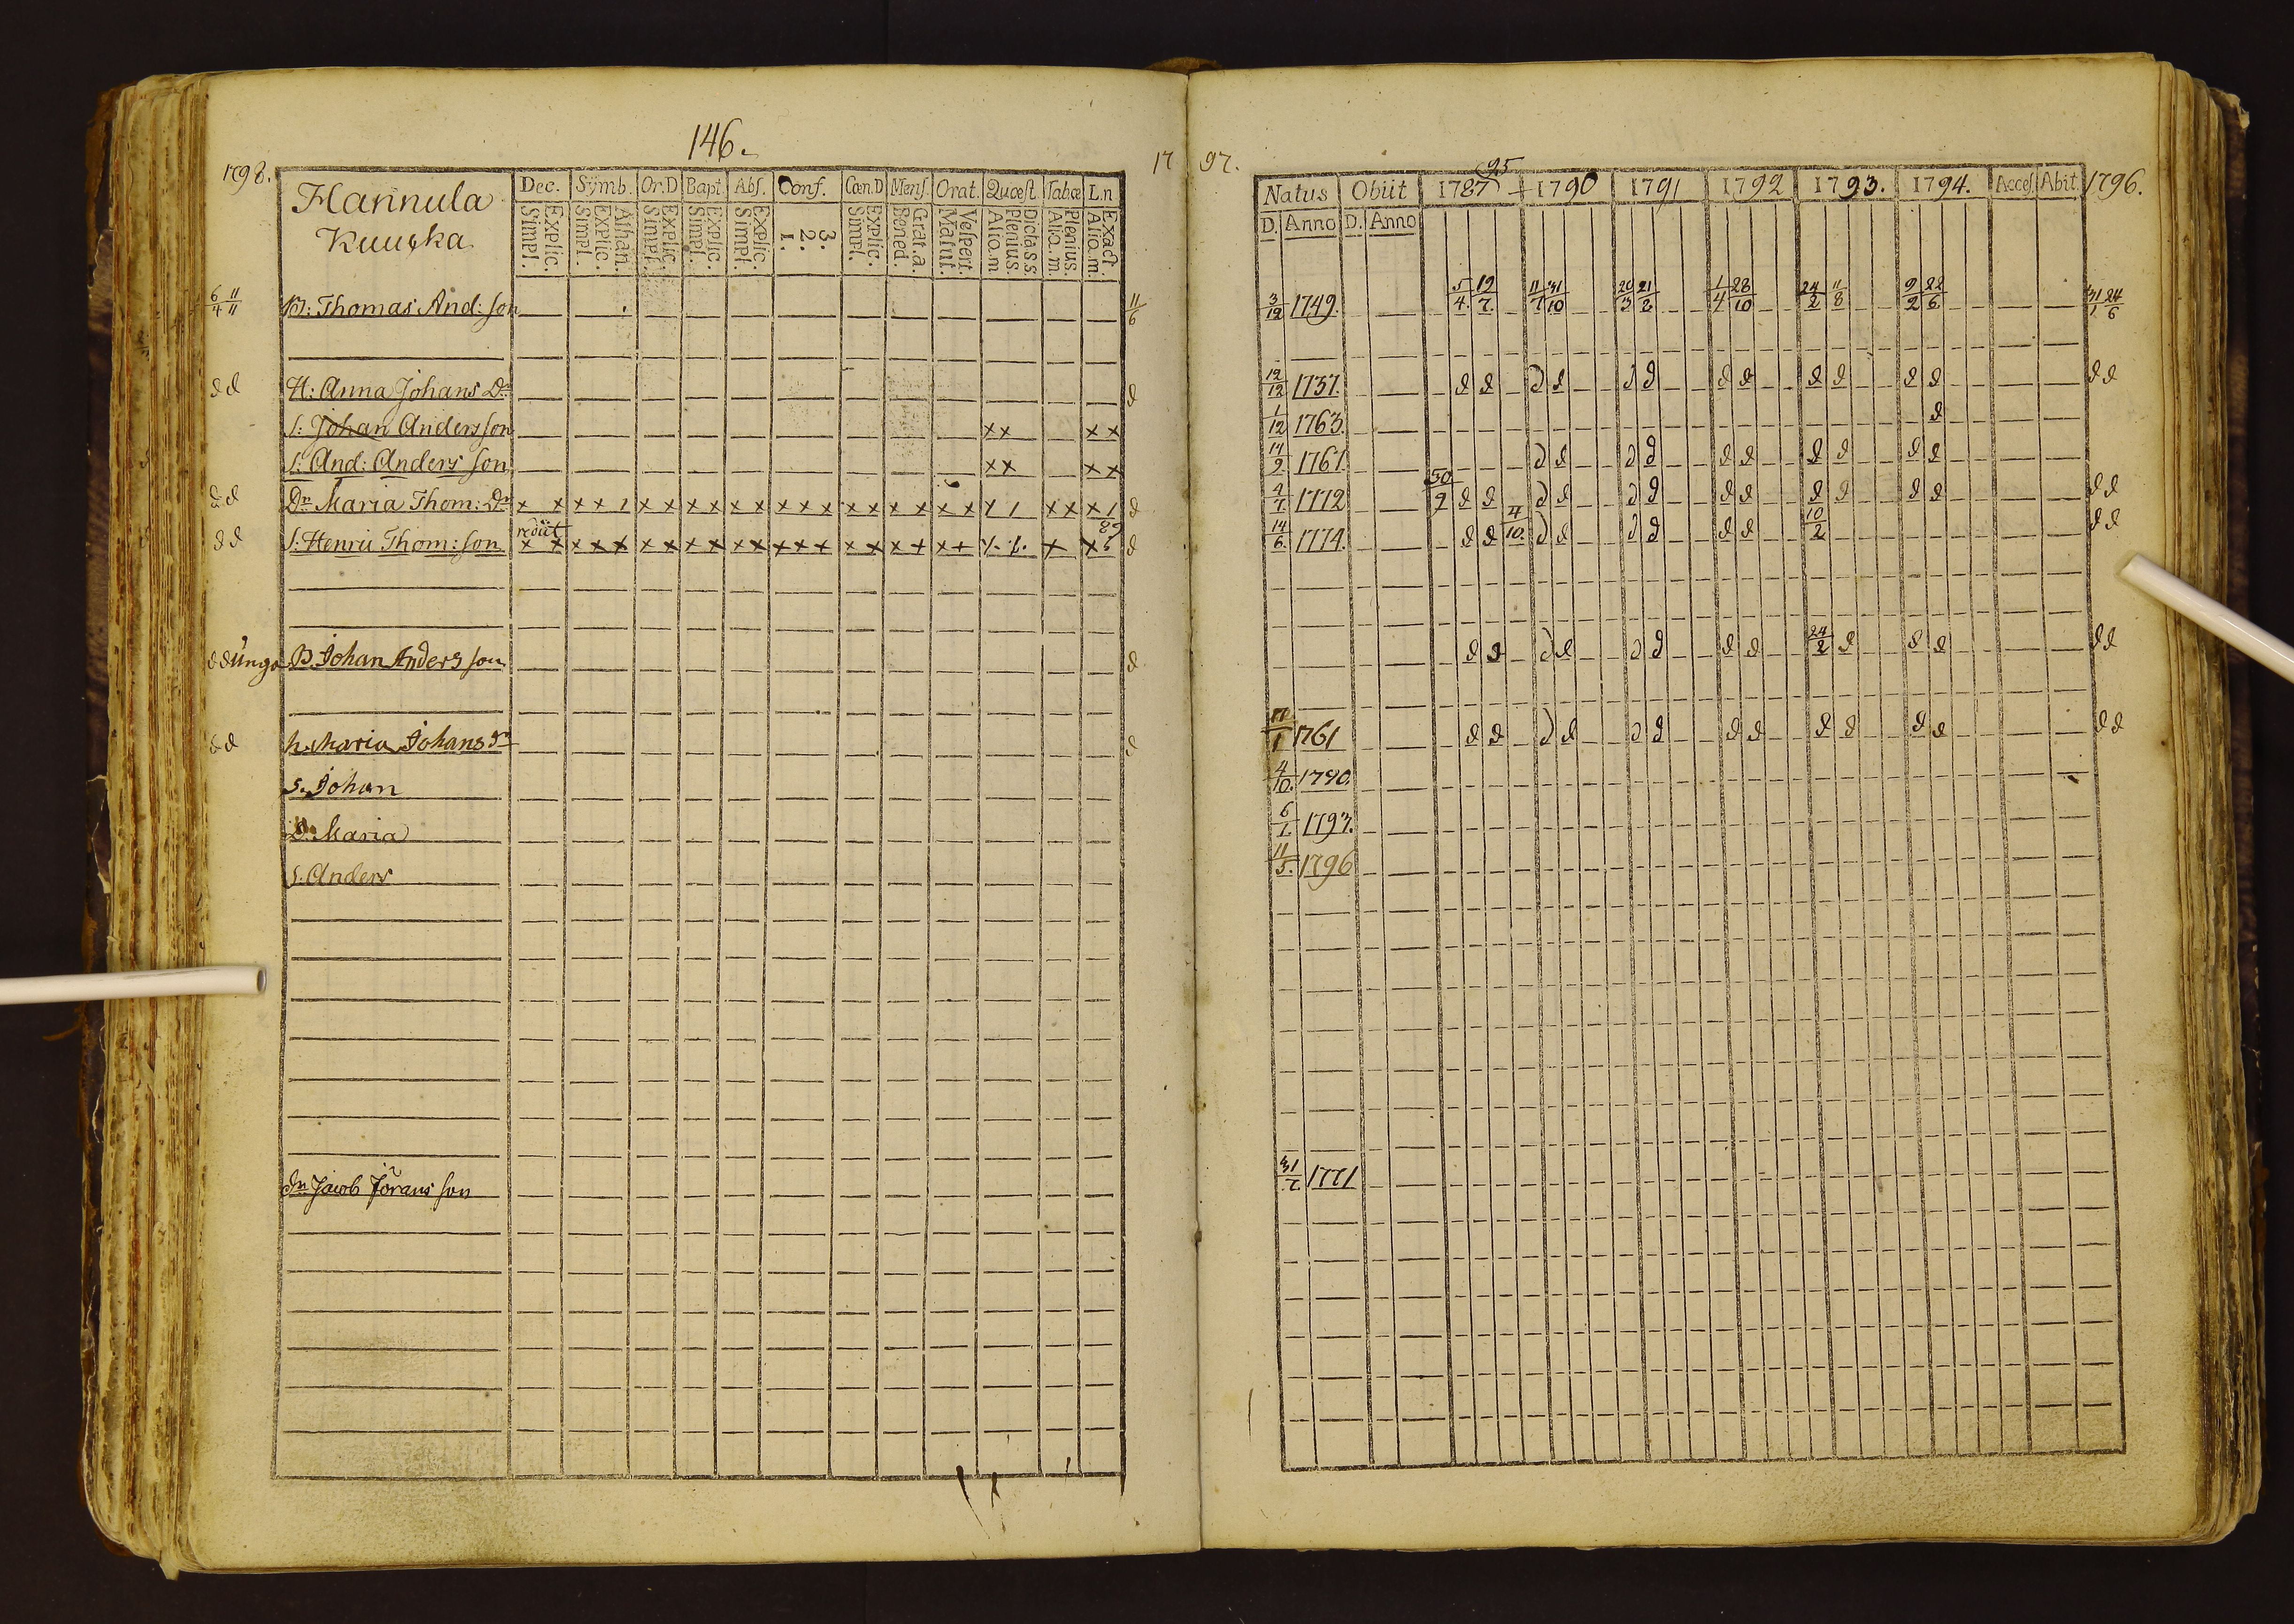 146.
1798.
17 97.
Hannula
Kuuska
Dec. Symb. Or.D Bapt. Abs. Conf. Cœn.D Mens. Orat. Quæst. Tabæ L.n
Explic. Simpl. Athan. Explic. Simpl. Explic. Simpl. Explic. Simpl. Explic. Simpl. 3. 2. 1. Explic. Simpl. Grat.a. Bened. Vespert. Matut. Dicta s.s. Plenius. Aliq.m. Plenius. Aliq.m. Exact Aliq.m.
Natus Obiit 1787 95 1790 1791 1792 1793. 1794. Acces. Abit. 1796.
D. Anno D. Anno
6/4 11/11 B: Thomas And: son 11/6 3/12 1749. 5/4. 19/7. 11/7 31/10 20/3 21/8 1/4 28/10 24/2 11/8 9/2 22/6. 31/1 24/6
d d H: Anna Johans Dr d 12/12 1737. d d d d d d d d d d d d d d
S: Johan Andersson x x x x 1/12 1763. d
S: And: Anders son x x x x 14/9 1761. d d d d d d d d d d
d d Dr Maria Thom: Dr x x x x 1 x x x x x x x x x x x x x x x x 1 x x x 1 d 1772 d d d d d d d d d d d d d d
rediit
d d S: Henric Thom: son x x x x x x x x x x x x x x x x x x x x x d 14/6. 1774. d d 4/10. d d d d d d 10/2 d d
d d unga B. Johan Anders son d d d d d d d d d 24/2 d d d d d
d d h. Maria Johans dr d 11/1 1761 d d d d d d d d d d d d d d
S. Johan 4/10. 1790.
D. Maria 6/1. 1793.
S. Anders 11/5. 1796
dn Jacob Jörans son 31/7. 1771